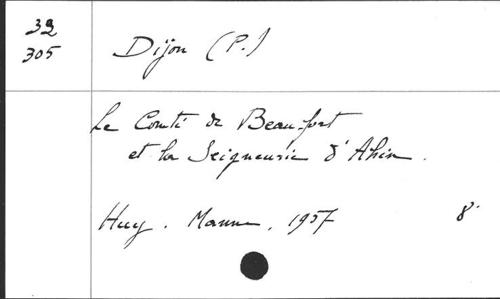 39
305
Dijon (P.)
Le Comté de Beaufort
et la Seigneurie d'Ahin.
Huy. Manne, 1957 8°